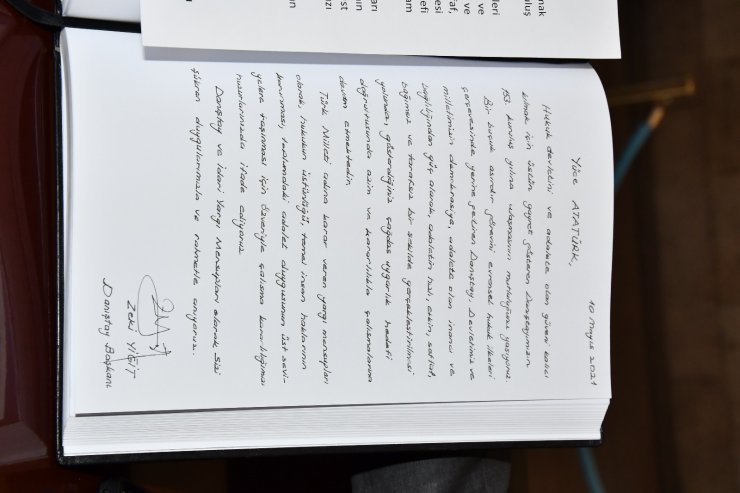 10 Mayıs 2021
Yüce ATATÜRK,
Hukuk devletini ve adalete olan güveni kalıcı
kılmak için üstün gayret gösteren Danıştayımızın
153. kuruluş yılına ulaşmanın mutluluğunu yaşıyoruz.
Bir buçuk asırdır görevini evrensel hukuk ilkeleri
çerçevesinde yerine getiren Danıştay, Devletimiz ve
milletimizin demokrasiye, adalete olan inancı ve
bağlılığından güç alarak, adaletin hızlı, etkin, saffaf,
bağımsız ve tarafsız bir şekilde gerçekleştirilmesi
yolunda, gösterdiğiniz çağdaş uygarlık hedefi
doğrultusunda azim ve kararlılıkla çalışmalarına
devam etmektedir.
Türk Milleti adına karar veren yargı mensupları
olarak, hukukun üstünlüğü, temel insan haklarının
korunması, toplumdaki adalet duygusunun üst sevi-
yelere taşınması için özveriyle çalışma kararlılığımızı
huzurlarınızda ifade ediyoruz.
Danıştay ve İdari Yargı Mensupları olarak Sizi
şükran duygularımızla ve rahmetle anıyoruz.
Zeki YİĞİT
Danıştay Başkanı